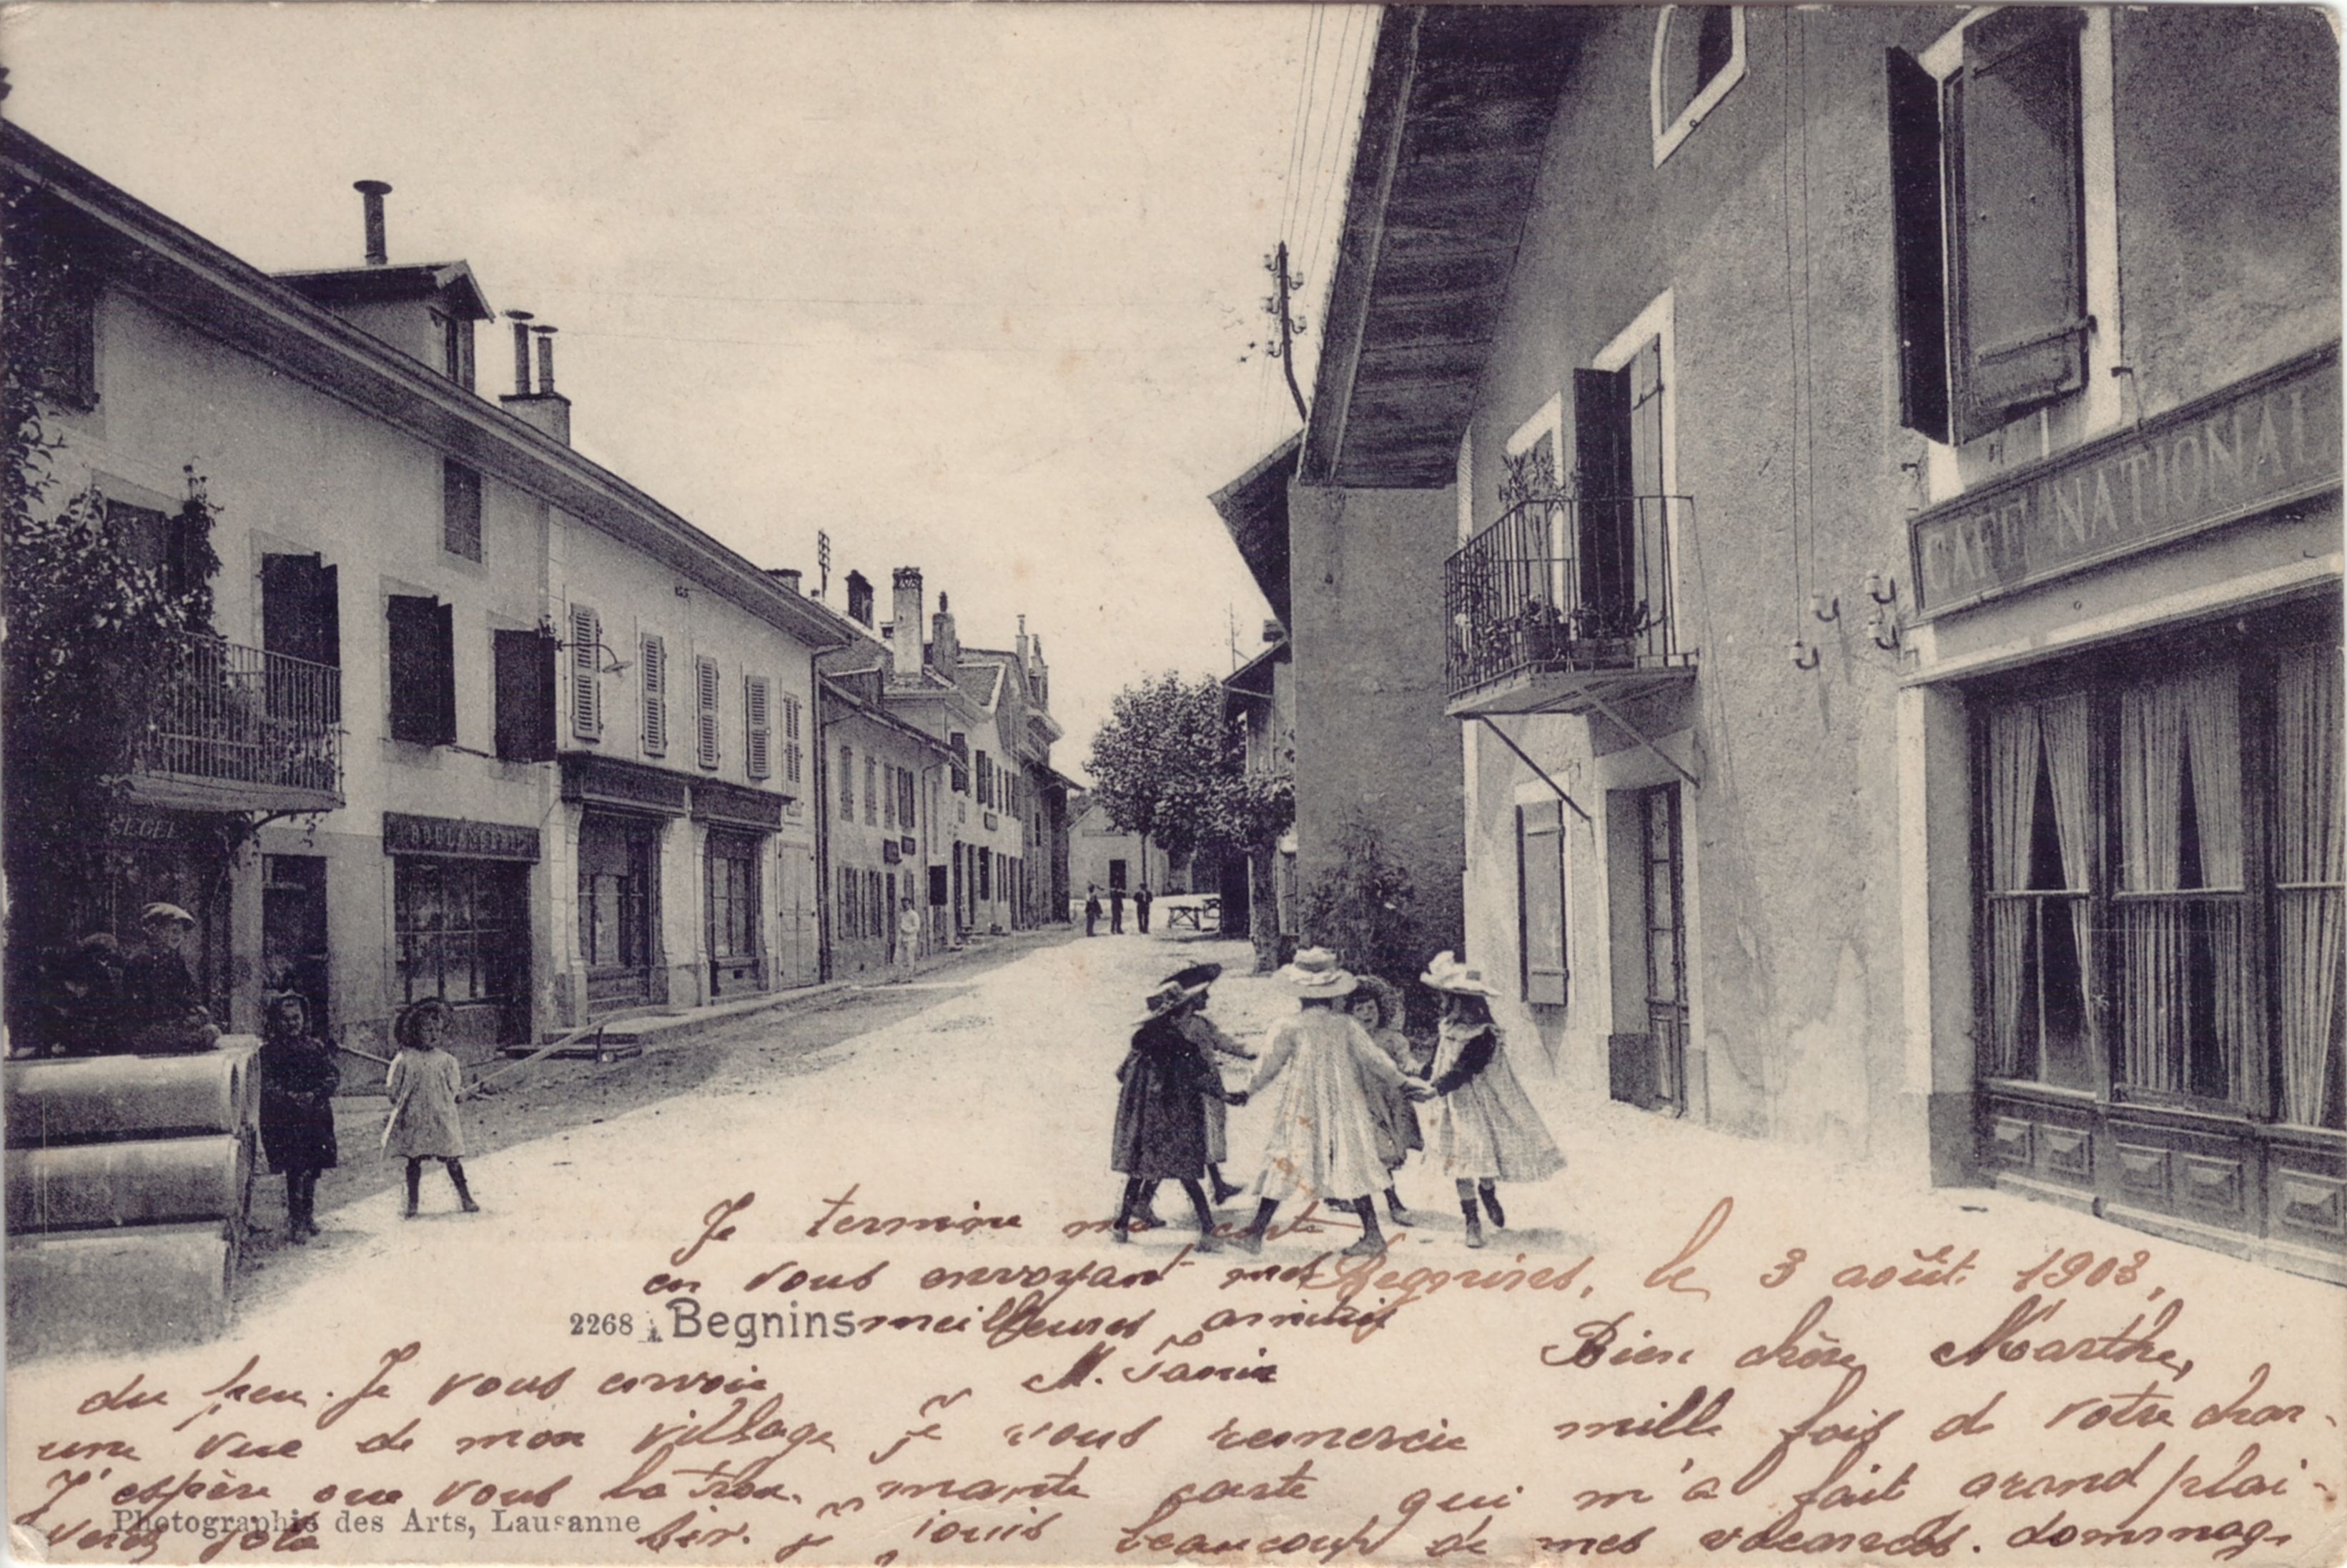 CAFÉ NATIONAL
BOULANGERIE
Je termine ma carte
en vous envoyant mes
meilleures amitiés
Begnins, le 3 août 1903,
2268 Begnins
Bien chère Marthe,
du feu. Je vous envoie
une vue de mon village
J'espère que vous la trou-
verez jolie
je vous remercie mille fois de votre char-
mante carte qui m'a fait grand plai-
sir. je jouis beaucoup de mes vacances. dommage
Photographie des Arts, Lausanne